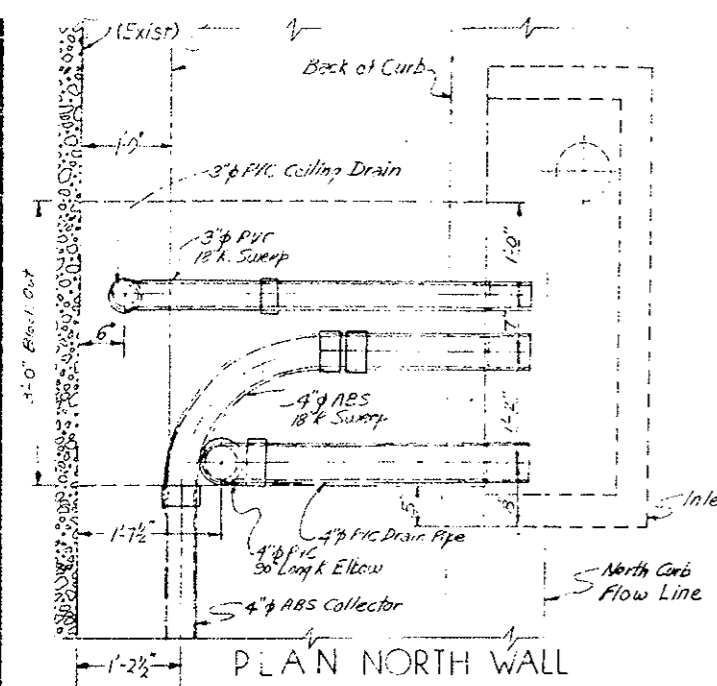 (Exist)
Back of Curb
1'-0"
3"φ PVC Ceiling Drain
3"φ PVC
18"R Sweep
1'-0"
6"
7"
3'-0" Block Out
4"φ ABS
18"R Sweep
1'-2"
5"
1'-7½"
4"φ PVC Drain Pipe
4"φ PVC
90° Long R Elbow
4"φ ABS Collector
North Curb
Flow Line
1'-2½"
PLAN NORTH WALL